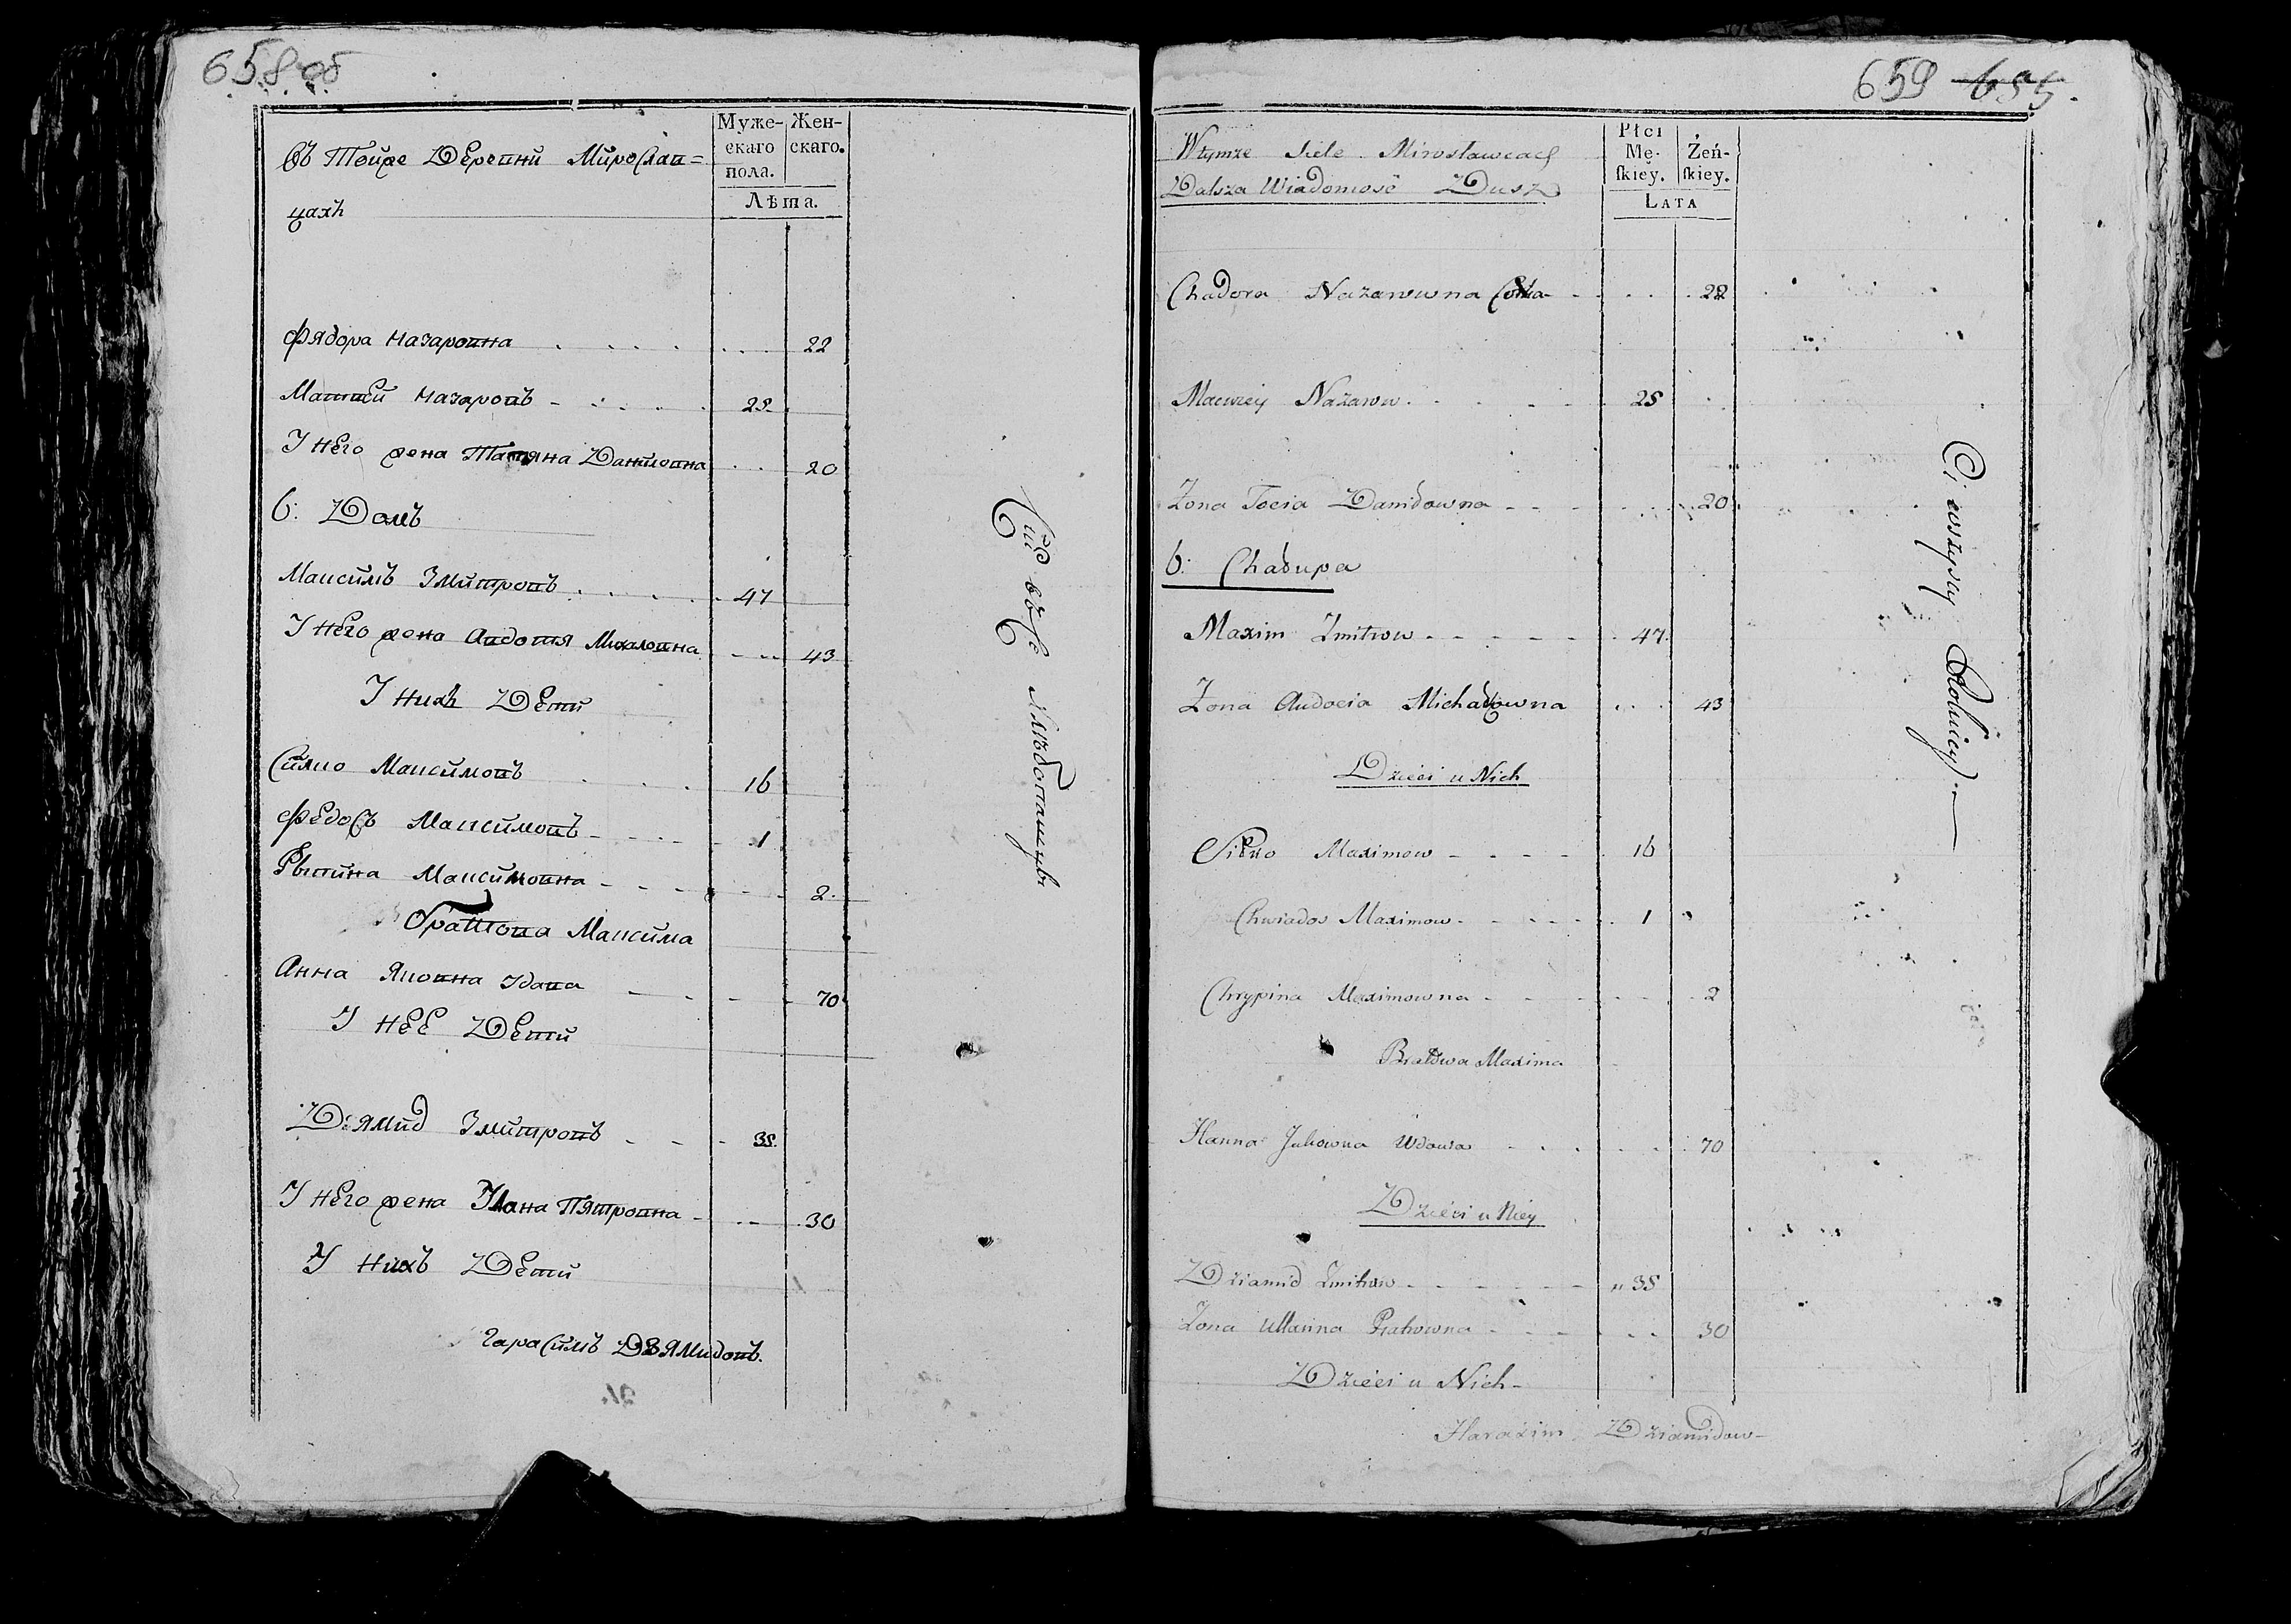 658 об
Въ тойже Деревни Мирослав=
цахъ
Муже- Жен-
скаго скаго.
пола.
Лѣта.
Фядора Назаровна 22
Маттей Назаровъ 25
У него жена Татяна Даниловна 20
6: Домъ
Максимъ Змитровъ 47
У него жена Авдотя Михаловна 43
У нихъ Дети
Силко Максимовъ 16
Федосъ Максимовъ 1
Максимовна 2
Братова Максима
Анна Яковна Удава 70
У неё Дети
Дзямид Змитровъ 35
У него жена Уляна Пятровна 30
У нихъ Дети
Гарасимъ Дзямидовъ.
Сии все Хлебопашцы
659 655.
Wtymże Siele Mirosławcach
Dalsza Wiadomość Dusz
Płci
Mę- Żeń-
skiey. skiey.
LATA
Chadora Nazarowna Corka 22
Maciey Nazarow 25
Zona Tocia Daniłowna 20
6: Chałupa
Maxim Zmitrow 47
Zona Audocia Michałowna 43
Dzieci u Nich
Siłko Maximow 16
Chwiados Maximow 1
Chrypina Maximowna 2
Bratowa Maxima
Hanna Jakowna Wdowa 70
Dzieci u Niey
Dziamid Zmitrow 35
Zona Ullanna Piatrowna 30
Dzieci u Nich
Harasim Dziamidow
Ci wszyscy Rolnicy